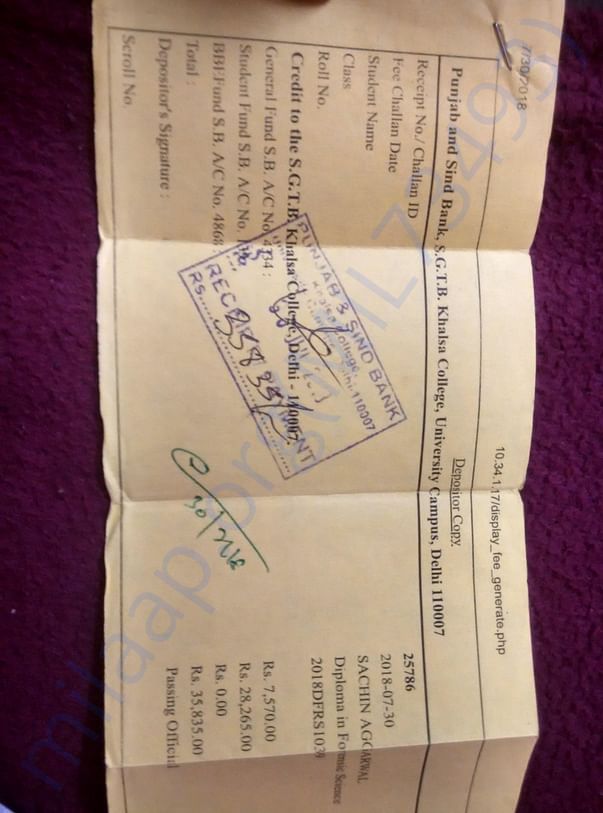 7/30/2018
10.34.1.17/display_fee_generate.php
Depositor Copy
Punjab and Sind Bank, S.G.T.B. Khalsa College, University Campus, Delhi 110007
Receipt No./ Challan ID 25786
Fee Challan Date 2018-07-30
Student Name SACHIN AGGARWAL
Class Diploma in Forensic Science
Roll No. 2018DFRS1039
Credit to the S.G.T.B. Khalsa College, Delhi - 110007.
General Fund S.B. A/C No. 4334 : Rs. 7,570.00
Student Fund S.B. A/C No. Rs. 28,265.00
BBPF Fund S.B. A/C No. Rs. 0.00
Total : Rs. 35,835.00
Depositor's Signature : Passing Official
Scroll No.
PUNJAB & SIND BANK
Khalsa College,
Delhi, 110007
Rs.
milaap.org